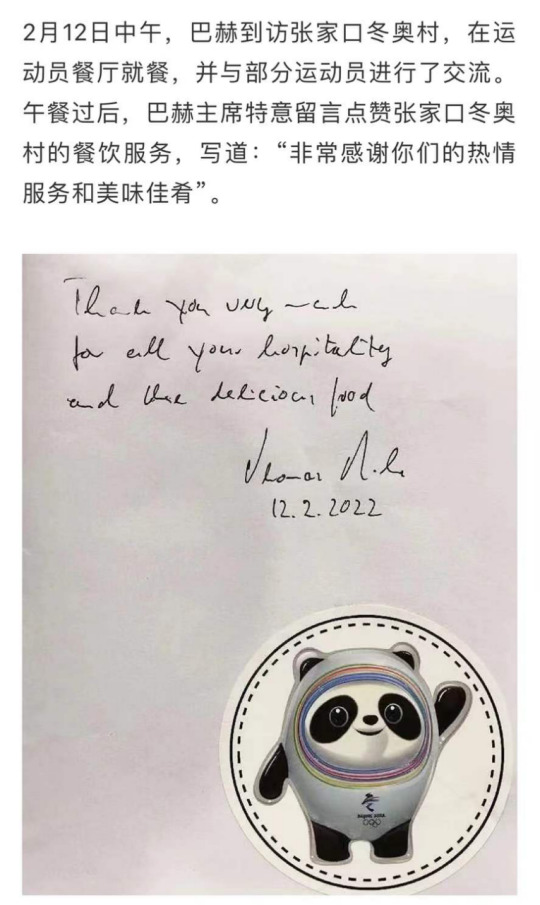 2月12日中午，巴赫到访张家口冬奥村，在运
动员餐厅就餐，并与部分运动员进行了交流。
午餐过后，巴赫主席特意留言点赞张家口冬奥
村的餐饮服务，写道：“非常感谢你们的热情
服务和美味佳肴”。
Thank you very much
for all your hospitality
and the delicious food
Thomas
12.2.2022
BEIJING 2022